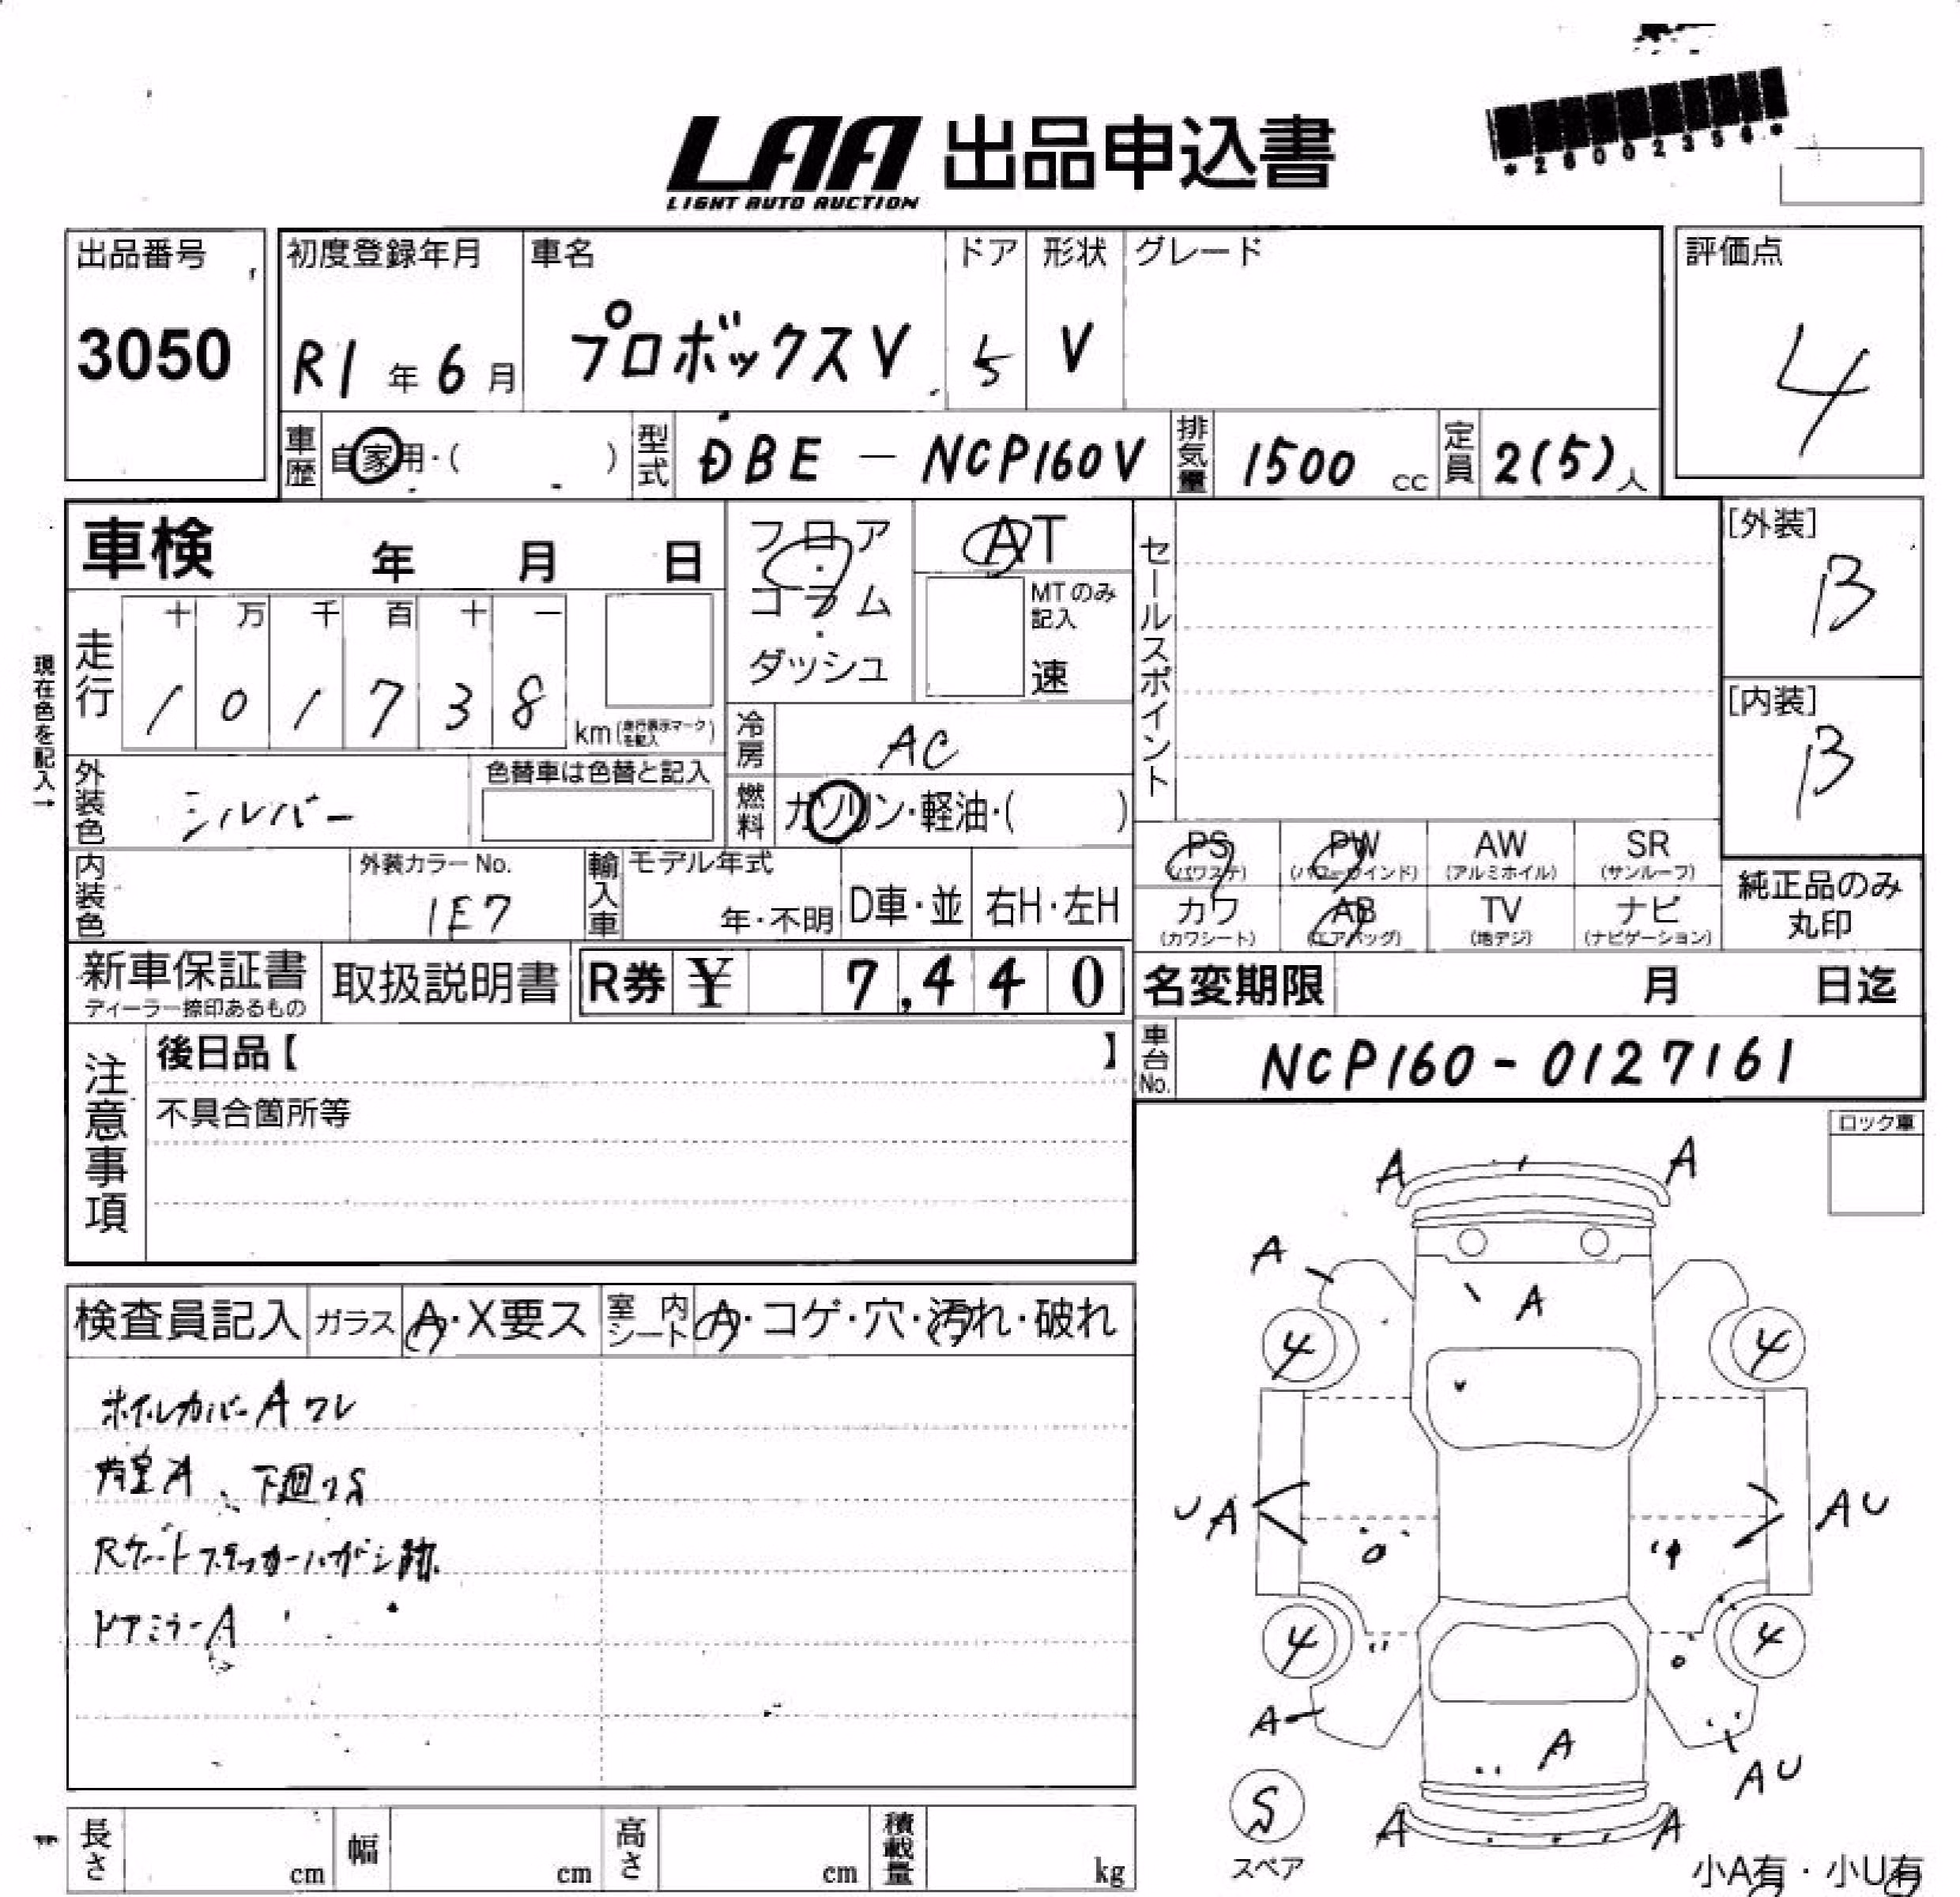 LAA 出品申込書
LIGHT AUTO AUCTION
*26002356*
出品番号
3050
初度登録年月
R1年6月
車名
プロボックスV
ドア
5
形状
V
グレード
評価点
4
車歴 自家用・( )
型式 DBE - NCP160V
排気量 1500 cc
定員 2(5)人
車検 年 月 日
フロア・コラム・ダッシュ
AT
MTのみ記入
速
セールスポイント
[外装]
B
[内装]
B
現在色を記入→
走行
十 万 千 百 十 一
1 0 1 7 3 8
km(走行表示マークを記入)
冷房 AC
外装色 シルバー
色替車は色替と記入
燃料 ガソリン・軽油・( )
内装色
外装カラーNo.
1E7
輸入車 モデル年式
年・不明
D車・並
右H・左H
PS (パワステ)
PW (パワーウインド)
AW (アルミホイル)
SR (サンルーフ)
カワ (カワシート)
AB (エアバッグ)
TV (地デジ)
ナビ (ナビゲーション)
純正品のみ丸印
新車保証書
ディーラー捺印あるもの
取扱説明書
R券 ¥ 7,440
名変期限 月 日迄
車台No. NCP160-0127161
注意事項
後日品【 】
不具合箇所等
ロック車
検査員記入
ガラス A・X要ス
室内シート A・コゲ・穴・汚れ・破れ
ホイルカバーA ワレ
荷室A、下廻りS
Rゲートステッカーハガシ跡
ドアミラーA
A A
A
A
4 4
UA AU
4 4
A
A
AU
A A
S
スペア
小A有・小U有
長さ cm
幅 cm
高さ cm
積載量 kg